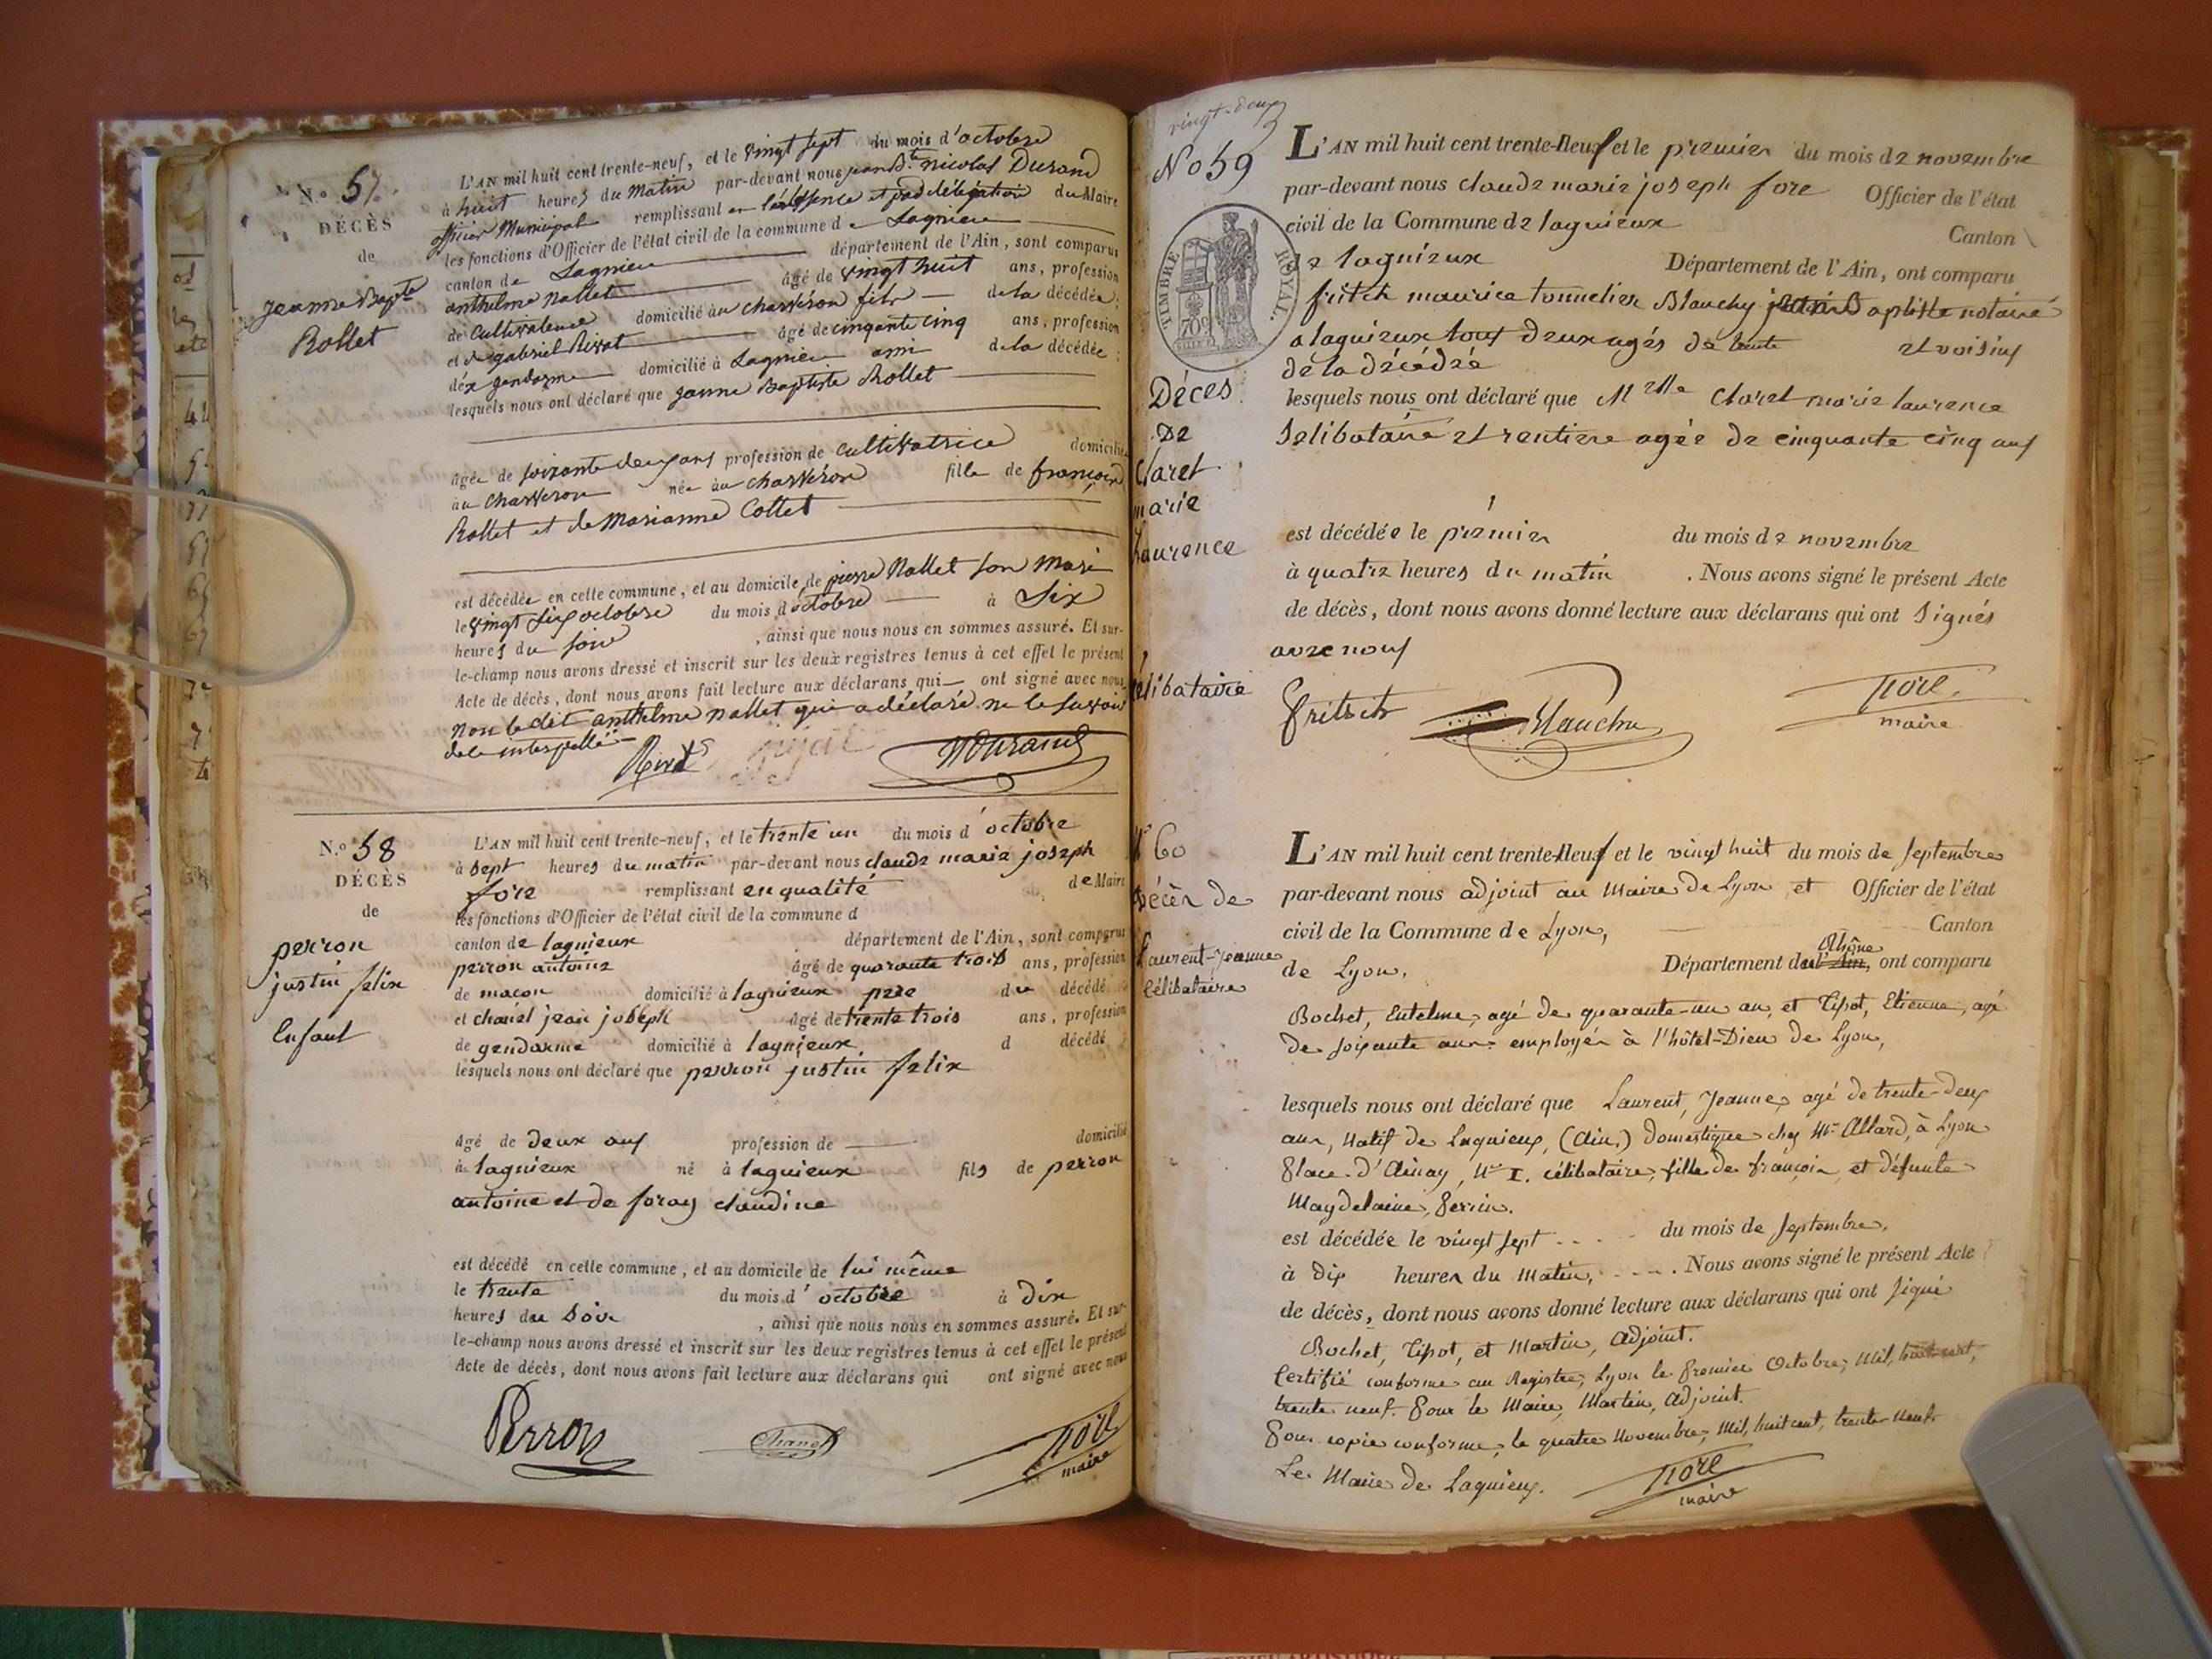 N.o 57.
DÉCÈS
de
Jeanne Bapte
Rollet
L'AN mil huit cent trente-neuf, et le vingt sept du mois d'octobre
à huit heures du matin par-devant nous jean Bte nicolas Durand
officier Municipal remplissant en l'absence et par délégation du Maire
les fonctions d'Officier de l'état civil de la commune de Lagnieu
canton de Lagnieu département de l'Ain, sont comparus
anthelme Nallet âgé de vingt huit ans, profession
de Cultivateur domicilié au charveron fils de la décédée ;
et de gabriel Rivat âgé de cinquante cinq ans, profession
d'éx gendarme domicilié à Lagnieu ami de la décédée ;
lesquels nous ont déclaré que janne Baptiste Rollet
âgée de soixante deux ans profession de Cultivatrice domicilié
au charveron née au charvéron fille de françois
Rollet et de Marianne Collet
est décédée en cette commune, et au domicile de pierre Nallet son mari
le vingt six octobre du mois d'octobre à Six
heures du soir , ainsi que nous nous en sommes assuré. Et sur-
le-champ nous avons dressé et inscrit sur les deux registres tenus à cet effet le présent
Acte de décès, dont nous avons fait lecture aux déclarans qui ont signé avec nous
non le dit anthelme nallet qui a déclaré ne le savoir
de ce interpellé
N Durand
N.o 58
DÉCÈS
de
perron
justin felix
Enfant
L'AN mil huit cent trente-neuf, et le trente un du mois d'octobre
à sept heures du matin par-devant nous claude marie joseph
fore remplissant en qualité de Maire
les fonctions d'Officier de l'état civil de la commune d
canton de lagnieux département de l'Ain, sont comparus
perron antoine âgé de quarante trois ans, profession
de macon domicilié à lagnieux pere du décédé
et chanel jean joseph âgé de trente trois ans, profession
de gendarme domicilié à lagnieux d décédé
lesquels nous ont déclaré que perron justin felix
âgé de deux ans profession de domicilié
à lagnieux né à lagnieux fils de perron
antoine et de foray claudine
est décédé en cette commune, et au domicile de lui même
le trente du mois d'octobre à dix
heures du soir , ainsi que nous nous en sommes assuré. Et sur-
le-champ nous avons dressé et inscrit sur les deux registres tenus à cet effet le présent
Acte de décès, dont nous avons fait lecture aux déclarans qui ont signé avec nous
Perron Chanel fore
maire
vingt-deux
No 59
TIMBRE ROYAL.
Décès
De
Claret
marie
Laurence
célibataire
L'AN mil huit cent trente-Neuf et le premier du mois de novembre
par-devant nous claude marie joseph fore Officier de l'état
civil de la Commune de lagnieux Canton
de lagnieux Département de l'Ain, ont comparu
fritch maurice tonnelier Blanchy jean Baptiste notaire
a lagnieux tous deux agés de trente et voisins
de la décédée
lesquels nous ont déclaré que Melle Claret marie laurence
Selibataire et rentiere agée de cinquante cinq ans
est décédée le premier du mois de novembre
à quatre heures du matin . Nous avons signé le présent Acte
de décès, dont nous avons donné lecture aux déclarans qui ont signés
avec nous
fritsch Blanchy fore
maire
No 60
Décès de
Laurent-Jeanne
Célibataire
L'AN mil huit cent trente-Neuf et le vingt huit du mois de Septembre
par-devant nous adjoint au Maire de Lyon, et Officier de l'état
civil de la Commune de Lyon, Canton
de Lyon, Département du Rhône l'Ain, ont comparu
Bochet, Entelme, agé de quarante-un an, et Tipot, Etienne, agé
de soixante ans, employés à l'hôtel-Dieu de Lyon,
lesquels nous ont déclaré que Laurent, Jeanne, agé de trente-deux
ans, Natif de Lagnieux, (Ain,) domestique chez Mr Allard, à Lyon
Place d'Ainay, No I. célibataire, fille de françois, et défunte
Magdelaine, Perrin.
est décédée le vingt sept du mois de Septembre,
à dix heures du matin, . Nous avons signé le présent Acte
de décès, dont nous avons donné lecture aux déclarans qui ont signé
Bochet, Tipot, et Martin, adjoint.
Certifié conforme au Registre, Lyon le Premier Octobre, Mil, huit cent,
trente neuf. Pour le Maire, Martin, adjoint.
Pour copie conforme, le quatre Novembre, Mil, huit cent, trente-neuf.
Le Maire de Lagnieux. fore
maire